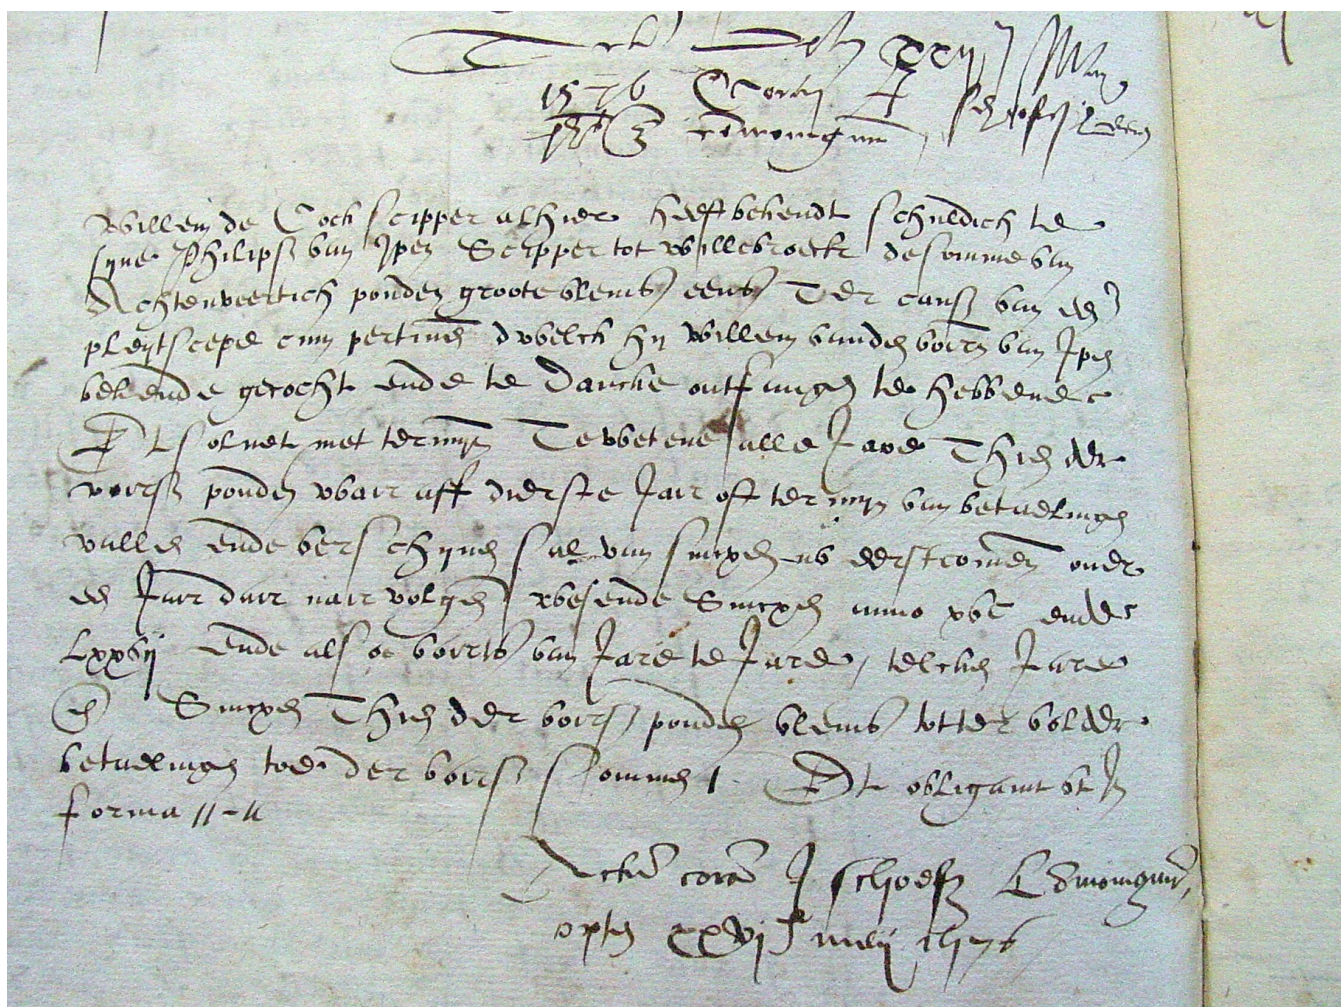 Actum den xxvj Maij
1576 Coram J schoeff L
Willem de Cock scipper alhier heeft bekendt schuldich te
syne Philips van Ipen Scipper tot Willebroeck de somme van
Achtenveertich ponden groote vlems eens Ter causen van een
pleytscepe cum pertinen dwelck hy Willem vanden voirn van Ipen
bekende gecocht ende te dancke ontfangen te hebbene
Et solvet met termyn Te wetene alle Jare Thien der
voirs ponden waer aff dierste Jair oft termyn van betaelingen
vallen ende verschynen sal van Sinxen nu eerstcomen over
een Jair dair nair volgen wesende Sinxen anno xvc ende
Lxxvij Ende alsoe voirts van Jare te Jare, telcken Jare
Sinxen Thien der voirs ponden vlems totter volder
betaelingen toe der voirs sommen Et obligavit ut in
forma
Actum coram J schoeff L
opten xxvj meij 1576